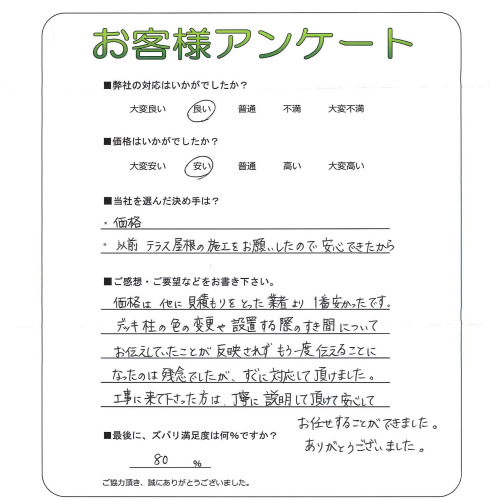 お客様アンケート
■弊社の対応はいかがでしたか？
大変良い 良い 普通 不満 大変不満
■価格はいかがでしたか？
大変安い 安い 普通 高い 大変高い
■当社を選んだ決め手は？
・価格
・以前 テラス屋根の施工をお願いしたので安心できたから
■ご感想・ご要望などをお書き下さい。
価格は 他に見積もりをとった業者より 1番安かったです。
デッキ柱の色の変更や設置する際のすき間について
お伝えしていたことが反映されず もう一度伝えることに
なったのは残念でしたが、すぐに対応して頂けました。
工事に来て下さった方は、丁寧に説明して頂けて安心して
お任せすることができました。
ありがとうございました。
■最後に、ズバリ満足度は何％ですか？
80 ％
ご協力頂き、誠にありがとうございました。